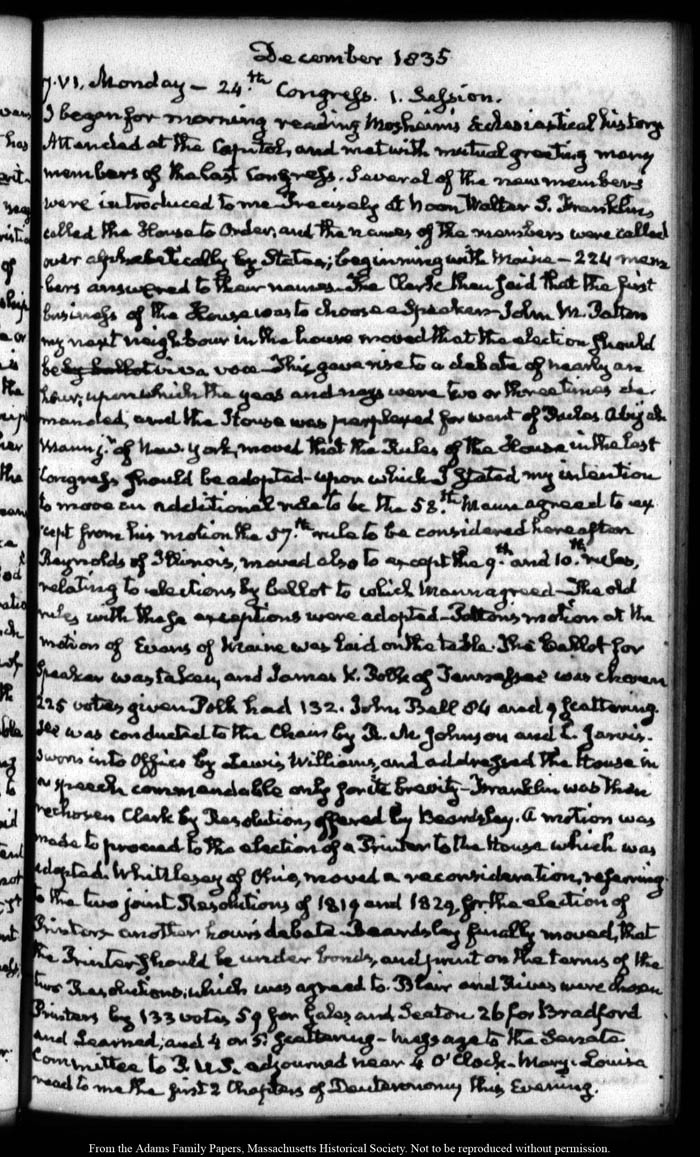 December 1835
7. VI. Monday – 24.th Congress. 1. Session.
I began for morning reading Mosheim's Ecclesiastical history
Attended at the Capitol, and met with mutual greeting many
members of the last Congress. Several of the new members
were introduced to me Precisely at Noon Walter S. Franklin,
called the House to Order, and the names of the members were called
over alphabetically by States; beginning with Maine – 224 mem
bers answered to their names. The Clerk then said that the first
business of the House was to choose a Speaker – John M. Patton
my next neighbour in the house moved that the election should
be by ballot viva voce – This gave rise to a debate of nearly an
hour; upon which the yeas and nays were two or three times de-
manded, and the House was perplexed for want of Rules. Abijah
Mann jr. of New York, moved that the Rules of the House in the last
Congress should be adopted – upon which I stated my intention
to move an additional rule to be the 58.th Mann agreed to ex
cept from his motion the 57.th rule to be considered hereafter
Reynolds of Illinois, moved also to except the 9.th and 10.th rules,
relating to elections by ballot to which Mann agreed – The old
rules with these exceptions were adopted – Patton's motion at the
motion of Evans of Maine was laid on the table. The ballot for
Speaker was taken, and James K. Polk of Tennessee was chosen
225 votes given Polk had 132. John Bell 84 and 9 scattering.
He was conducted to the Chair by R. M. Johnson and L. Jarvis.
Sworn into Office by Lewis Williams, and addressed the House in
a speech commendable only for its brevity – Franklin was then
rechosen Clerk by Resolution, offered by Beardsley. A motion was
made to proceed to the election of a Printer to the House which was
adopted. Whittlesey of Ohio, moved a reconsideration, referring
to the two joint Resolutions of 1819 and 1829, for the election of
Printers another hour's debate – Beardsley finally moved, that
the Printer should be under bonds, and print on the terms of the
two Resolutions; which was agreed to. Blair and Rives were chosen
Printers by 133 votes 59 for Gales and Seaton 26 for Bradford
and Learned; and 4 or 5. scattering – message to the Senate
Committee to P. U.S. adjourned near 4 O'Clock – Mary-Louisa
read to me the first 2 Chapters of Deuteronomy this Evening.
From the Adams Family Papers, Massachusetts Historical Society. Not to be reproduced without permission.